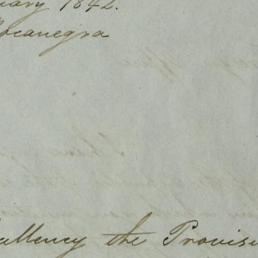 uary 1842.
ocanegra
cellency the Provisi